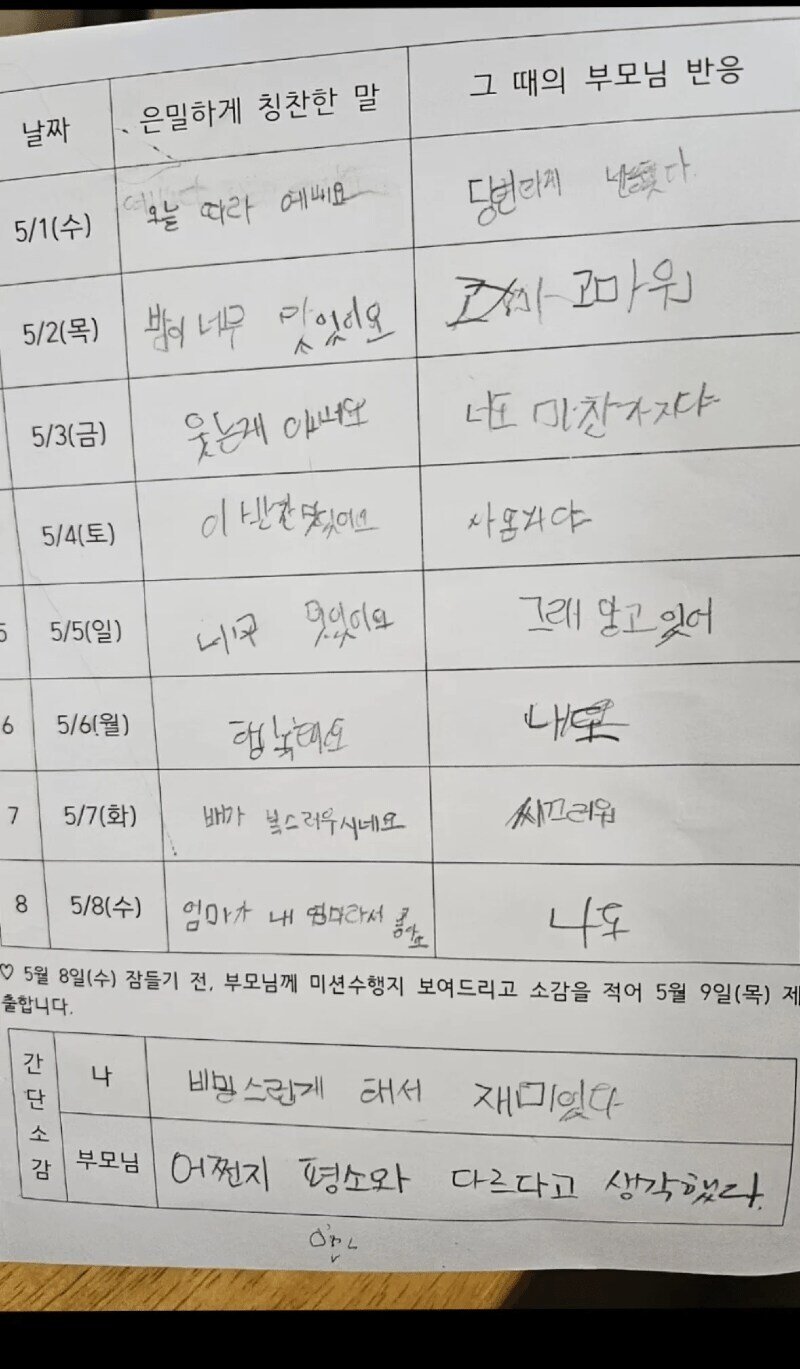 날짜 은밀하게 칭찬한 말 그 때의 부모님 반응
5/1(수) 오늘 따라 예뻐요
5/2(목) 밥이 너무 맛있어요 고마워
5/3(금) 웃는게 너도 마찬가지다
5/4(토) 이 반찬 맛있어요
5 5/5(일) 그래 알고 있어
6 5/6(월) 행복해요
7 5/7(화) 배가 복스러우시네요 씨끄러워
8 5/8(수) 엄마가 내 엄마라서 좋아요 나도
♡ 5월 8일(수) 잠들기 전, 부모님께 미션수행지 보여드리고 소감을 적어 5월 9일(목) 제
출합니다.
간단소감
나 재미있다
부모님 어쩐지 평소와 다르다고 생각했다.